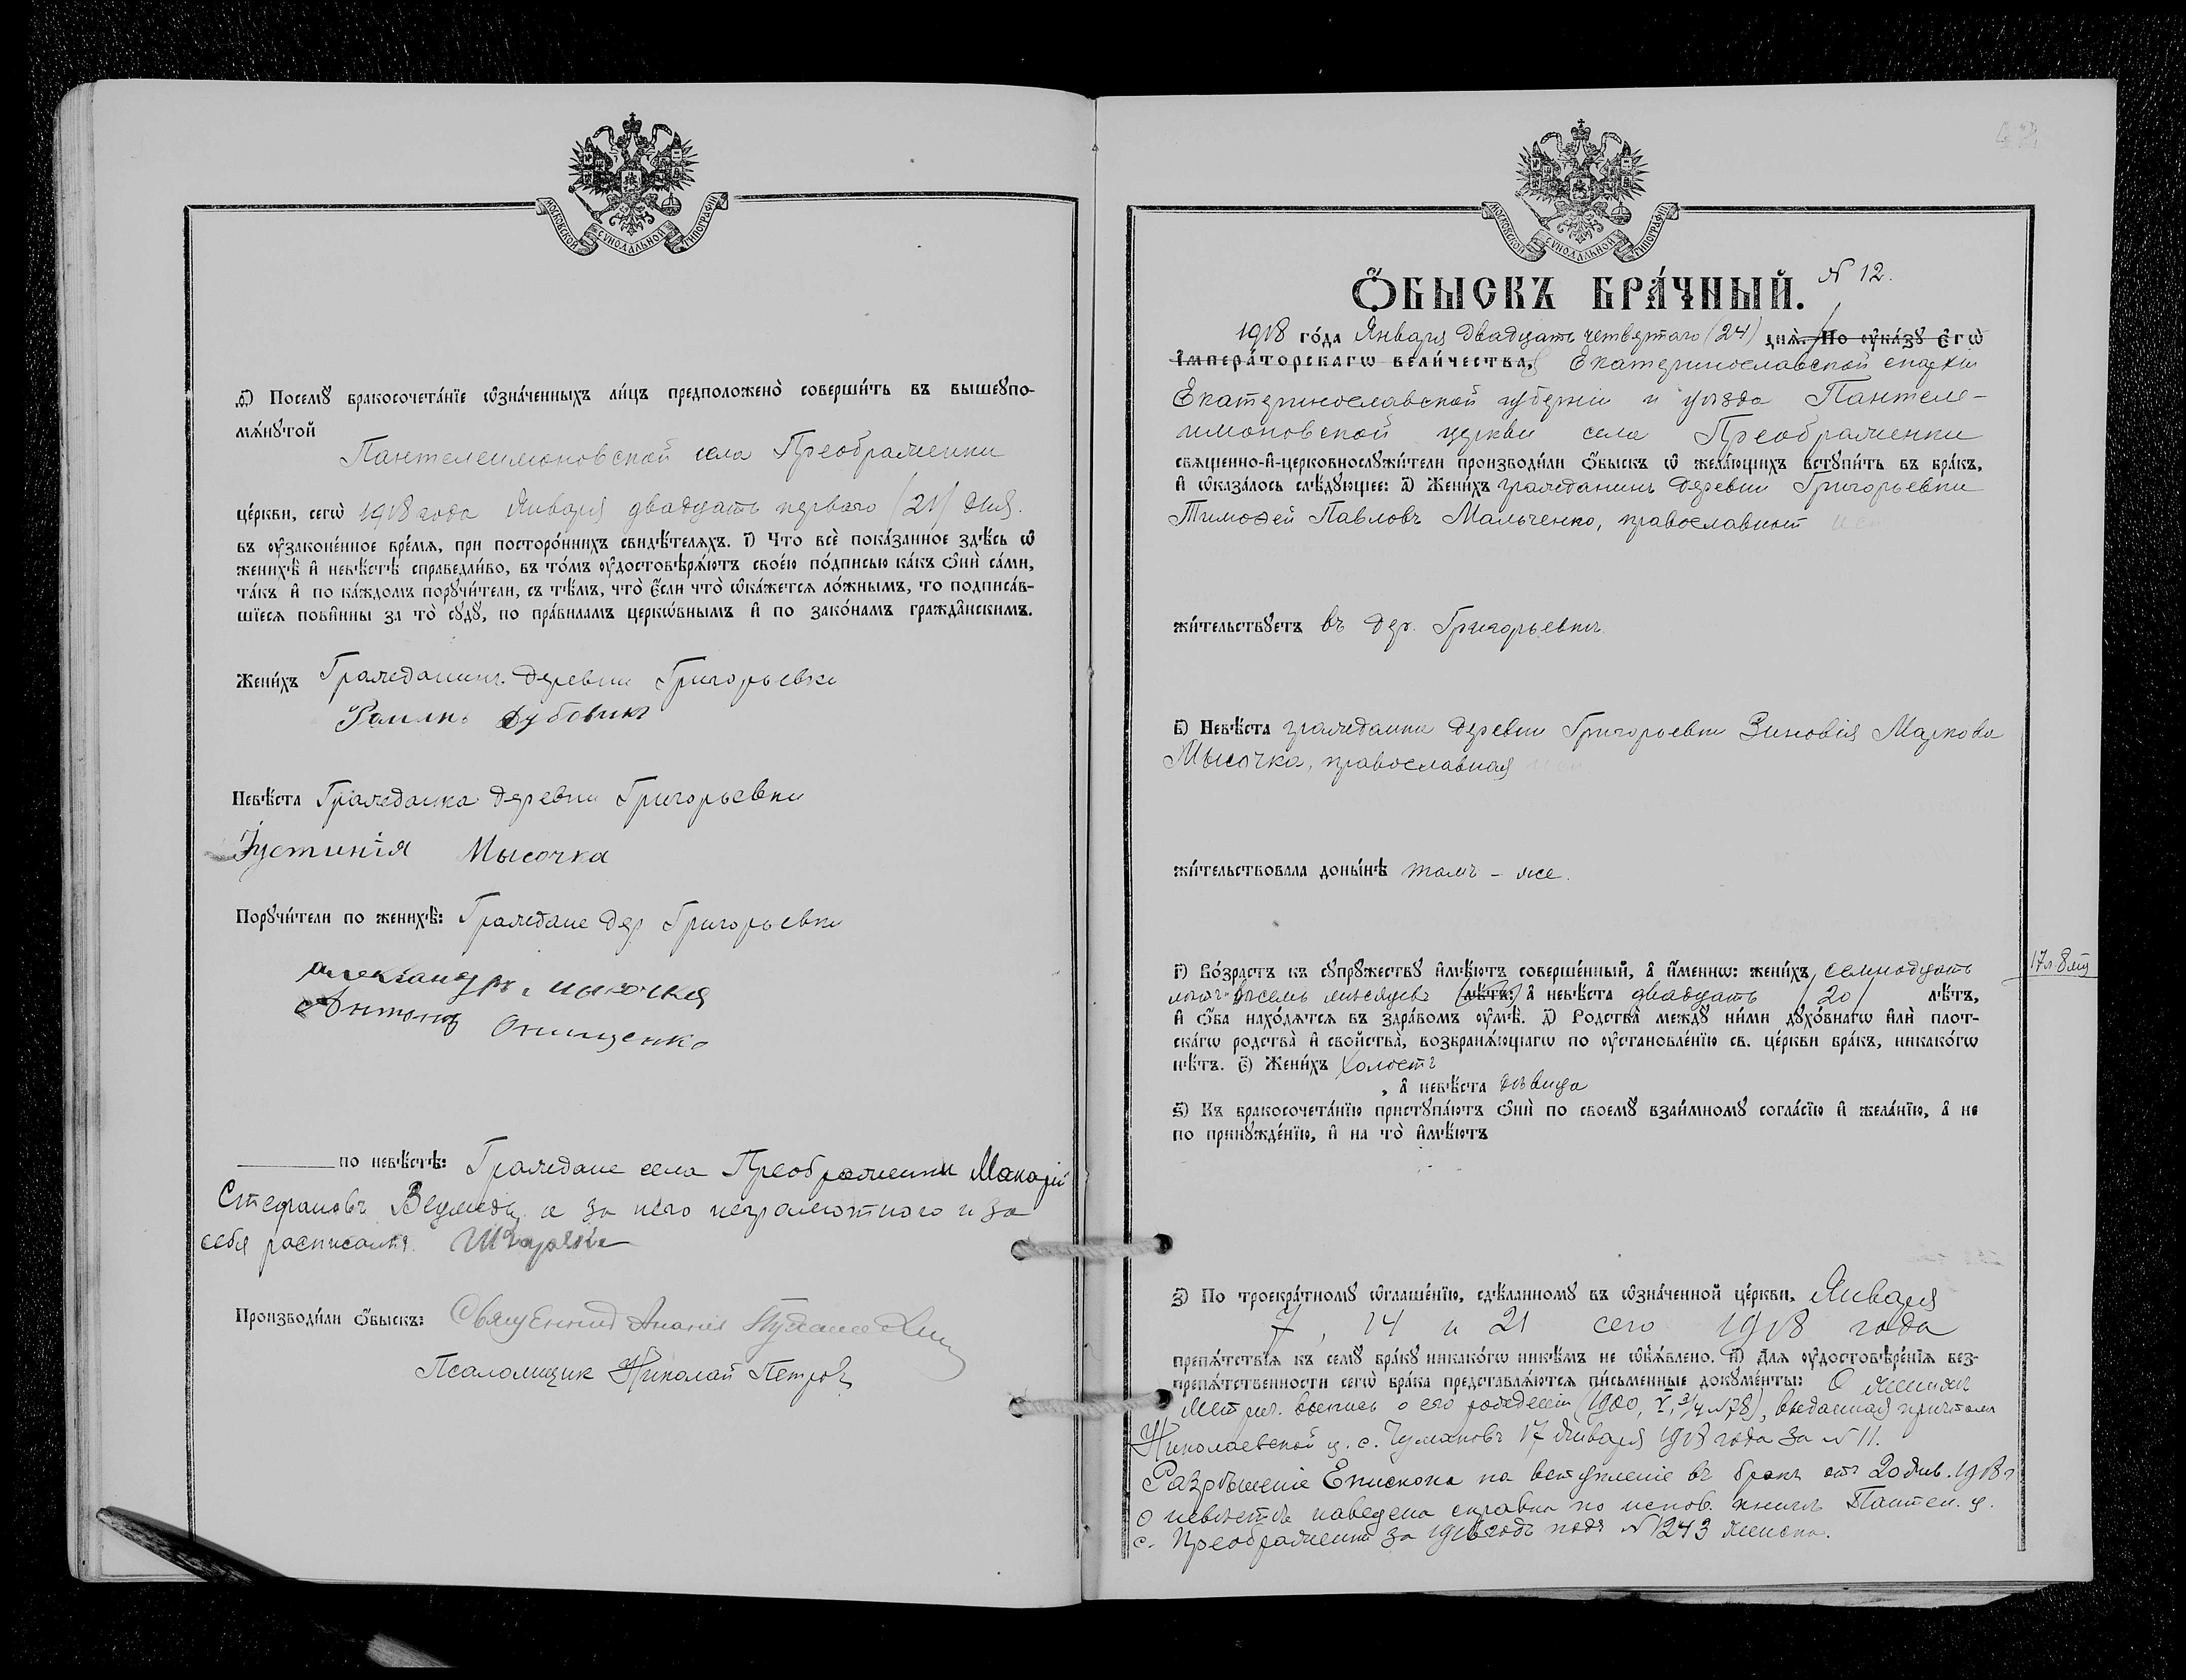 МОСКОВСКОЙ СѴНОДАЛЬНОЙ ТИПОГРАФІИ
ѳ҃) Посемꙋ бракосочета́нїе ѡзна́ченныхъ ли́цъ предположено̀ соверши́ть въ вышеꙋпо-
мѧ́нꙋтой
Пантелеимоновской села Преображенки
це́ркви, сегѡ̀ 1918 года Января двадцать перваго /21/ дня.
въ ᲂу҆зако́ненное вре́мѧ, при посторо́ннихъ свидѣ́телѧхъ. і҃) Что всѐ пока́занное здѣ́сь ѡ҆
женихѣ̀ и҆ невѣ́стѣ справедли́во, въ то́мъ ᲂу҆достовѣрѧ́ютъ свое́ю по́дписью ка́къ ѻ҆нѝ са́ми,
та́къ и҆ по ка́ждомъ порꙋчи́тели, съ тѣ́мъ, что̀ є҆́сли что̀ ѡ҆ка́жетсѧ ло́жнымъ, то подписа́в-
шїесѧ пови́нны за то̀ сꙋдꙋ̀, по пра́виламъ церкѡ́внымъ и҆ по зако́намъ гражда́нскимъ.
Жени́хъ Гражданинъ деревни Григорьевки
Романъ Дубовикъ
Невѣ́ста Гражданка деревни Григорьевки
Іустинія Мысочка
Порꙋчи́тели по женихѣ̀: Граждане дер Григорьевки
Александръ Мысочка
Антонъ Онищенко
по невѣ́стѣ: Граждане села Преображенки Макарій
Стефановъ Ведмедь, а за него неграмотного и за
себя расписался
Производи́ли ѻ҆́быскъ: Священник Ананія
Псаломщик Николай Петров
МОСКОВСКОЙ СѴНОДАЛЬНОЙ ТИПОГРАФІИ
Ѻ҆́БЫСКЪ БРА́ЧНЫЙ. N 12.
1918 го́да Января двадцать четвертаго (24) днѧ̀. По ᲂу҆ка́зꙋ Є҆гѡ̀
І҆мпера́торскагѡ вели́чества, Екатеринославской епархіи
Екатеринославской губерніи и уѣзда Пантеле-
имоновской церкви села Преображенки
свѧще́нно-и҆-церковнослꙋжи́тели производи́ли ѻ҆́быскъ ѡ҆ жела́ющихъ встꙋпи́ть въ бра́къ,
и҆ ѡ҆каза́лось слѣ́дꙋющее: а҃) Жени́хъ гражданинъ деревни Григорьевки
Тимофей Павловъ Мальченко, православной
жи́тельствꙋетъ въ дер. Григорьевкѣ
в҃) Невѣ́ста гражданка деревни Григорьевки Зиновія Маркова
Мысочка, православная
жи́тельствовала доны́нѣ тамъ-же.
г҃) Во́зрастъ къ сꙋпрꙋ́жествꙋ и҆мѣ́ютъ соверше́нный, а҆ и҆́меннѡ: жени́хъ, семнадцать
лѣтъ восемь мѣсяцевъ лѣ́тъ; а҆ невѣ́ста двадцать /20/ лѣ́тъ,
17 л 8 мѣс
и҆ ѻ҆́ба нахо́дѧтсѧ въ здра́вомъ ᲂу҆мѣ̀. д҃) Родства̀ междꙋ̀ ни́ми дꙋхо́внагѡ и҆лѝ плот-
ска́гѡ родства̀ и҆ сво́йства, возбранѧ́ющагѡ по ᲂу҆становле́нїю св. це́ркви бра́къ, никако́гѡ
нѣ́тъ. є҃) Жени́хъ холостъ
, а҆ невѣ́ста дѣвица
ѕ҃) Къ бракосочета́нїю пристꙋпа́ютъ ѻ҆нѝ по своемꙋ̀ взаи́мномꙋ согла́сїю и҆ жела́нїю, а҆ не
по принꙋжде́нїю, и҆ на то̀ и҆мѣ́ютъ
з҃) По троекра́тномꙋ ѡ҆глаше́нїю, сдѣ́ланномꙋ въ ѡ҆зна́ченной це́ркви, Января
7, 14 и 21 сего 1918 года
препѧ́тствїѧ къ семꙋ̀ бра́кꙋ никако́гѡ никѣ́мъ не ѡ҆б̾ѧ́влено. и҃) Для ᲂу҆достовѣре́нїѧ без-
препѧ́тственности сегѡ̀ бра́ка представлѧ́ютсѧ пи́сьменные докꙋме́нты: О женихѣ
Метрич. выпись о его рожденіи (1900, V, 3/4 N 78), выданная причтомъ
Николаевской ц. с. Чумаковъ 17 Января 1918 года за N 11.
Разрѣшеніе Епископа на вступленіе въ бракъ отъ 20 Янв. 1918 г
О невѣстѣ наведена справка по испов. книгѣ Пантел. ц.
с. Преображенки за 1916 годъ подъ N 1243 женска.